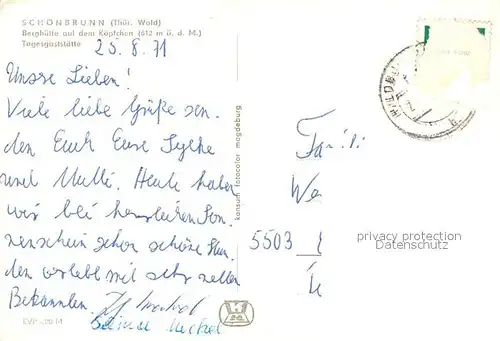 SCHÖNBRUNN (Thür. Wald)
Berghütte auf dem Köpfchen (612 m ü. d. M.)
Tagesgaststätte
25. 8. 71
Unsre Lieben!
Viele liebe Grüße sen-
den Euch Eure Sylke
und Mutti. Heute haben
wir bei herrlichen Son-
nenschein schon schöne Stun-
den verlebt mit sehr netten
Bekannten.
EVP
konsum fotocolor magdeburg
Famili
We
5503
privacy protection
Datenschutz